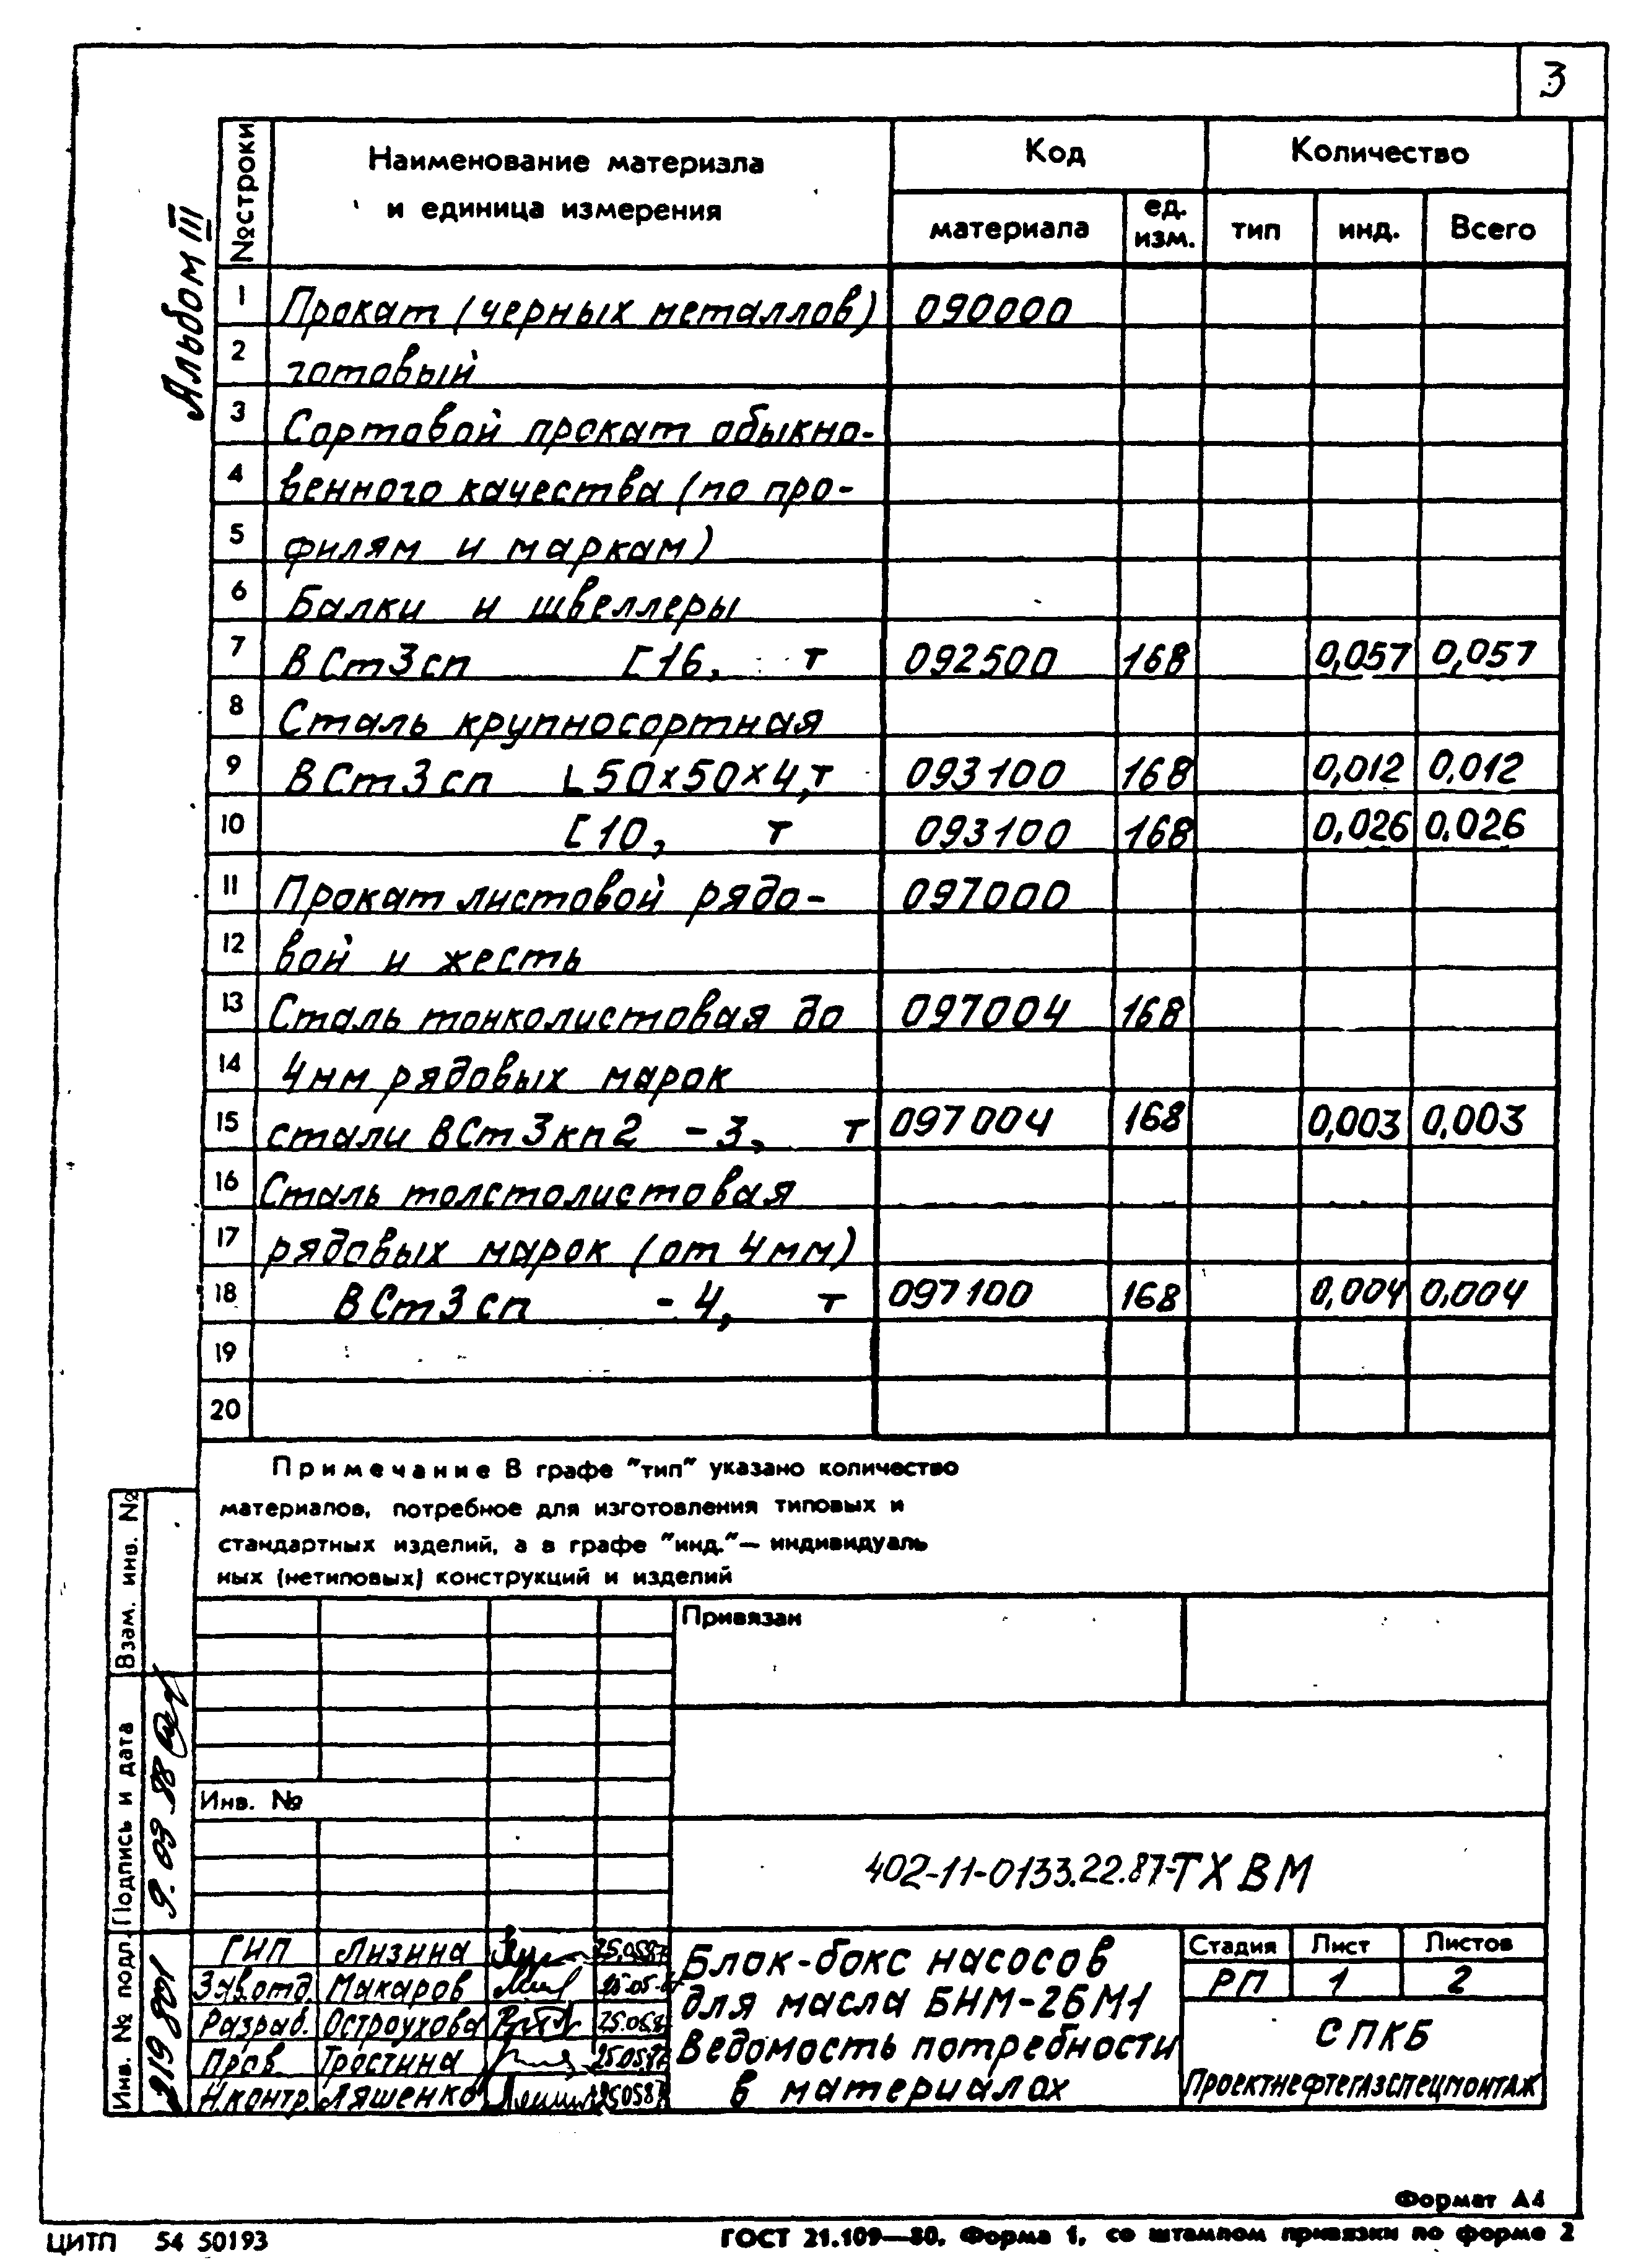 3
Альбом III
№ строки | Наименование материала и единица измерения | Код | Количество
материала | ед. изм. | тип | инд. | Всего
1 Прокат (черных металлов) 090000
2 готовый
3 Сортовой прокат обыкно-
4 венного качества (по про-
5 филям и маркам)
6 Балки и швеллеры
7 ВСт3сп [16, т 092500 168 0,057 0,057
8 Сталь крупносортная
9 ВСт3сп L50х50х4, т 093100 168 0,012 0,012
10 [10, т 093100 168 0,026 0.026
11 Прокат листовой рядо- 097000
12 вой и жесть
13 Сталь тонколистовая до 097004 168
14 4мм рядовых марок
15 стали ВСт3кп2 -3, т 097004 168 0,003 0,003
16 Сталь толстолистовая
17 рядовых марок (от 4мм)
18 ВСт3сп -4, т 097100 168 0,004 0,004
19
20
Примечание В графе "тип" указано количество
материалов, потребное для изготовления типовых и
стандартных изделий, а в графе "инд."— индивидуаль
ных (нетиповых) конструкций и изделий
Привязан
Инв. №
402-11-0133.22.87-ТХ ВМ
ГИП Лизина 25.05.87
Зав.отд. Макаров
Разраб. Остроухова
Пров. Тростина 25.05.87
Н.контр. Ляшенко 25.05.87
Блок-бокс насосов
для масла БНМ-2БМ1
Ведомость потребности
в материалах
Стадия Лист Листов
РП 1 2
СПКБ
ПРОЕКТНЕФТЕГАЗСПЕЦМОНТАЖ
Взам. инв. №
Подпись и дата 9.03.88
Инв. № подл.
Формат А4
ЦИТП 54 50193
ГОСТ 21.109—80. Форма 1, со штампом привязки по форме 2